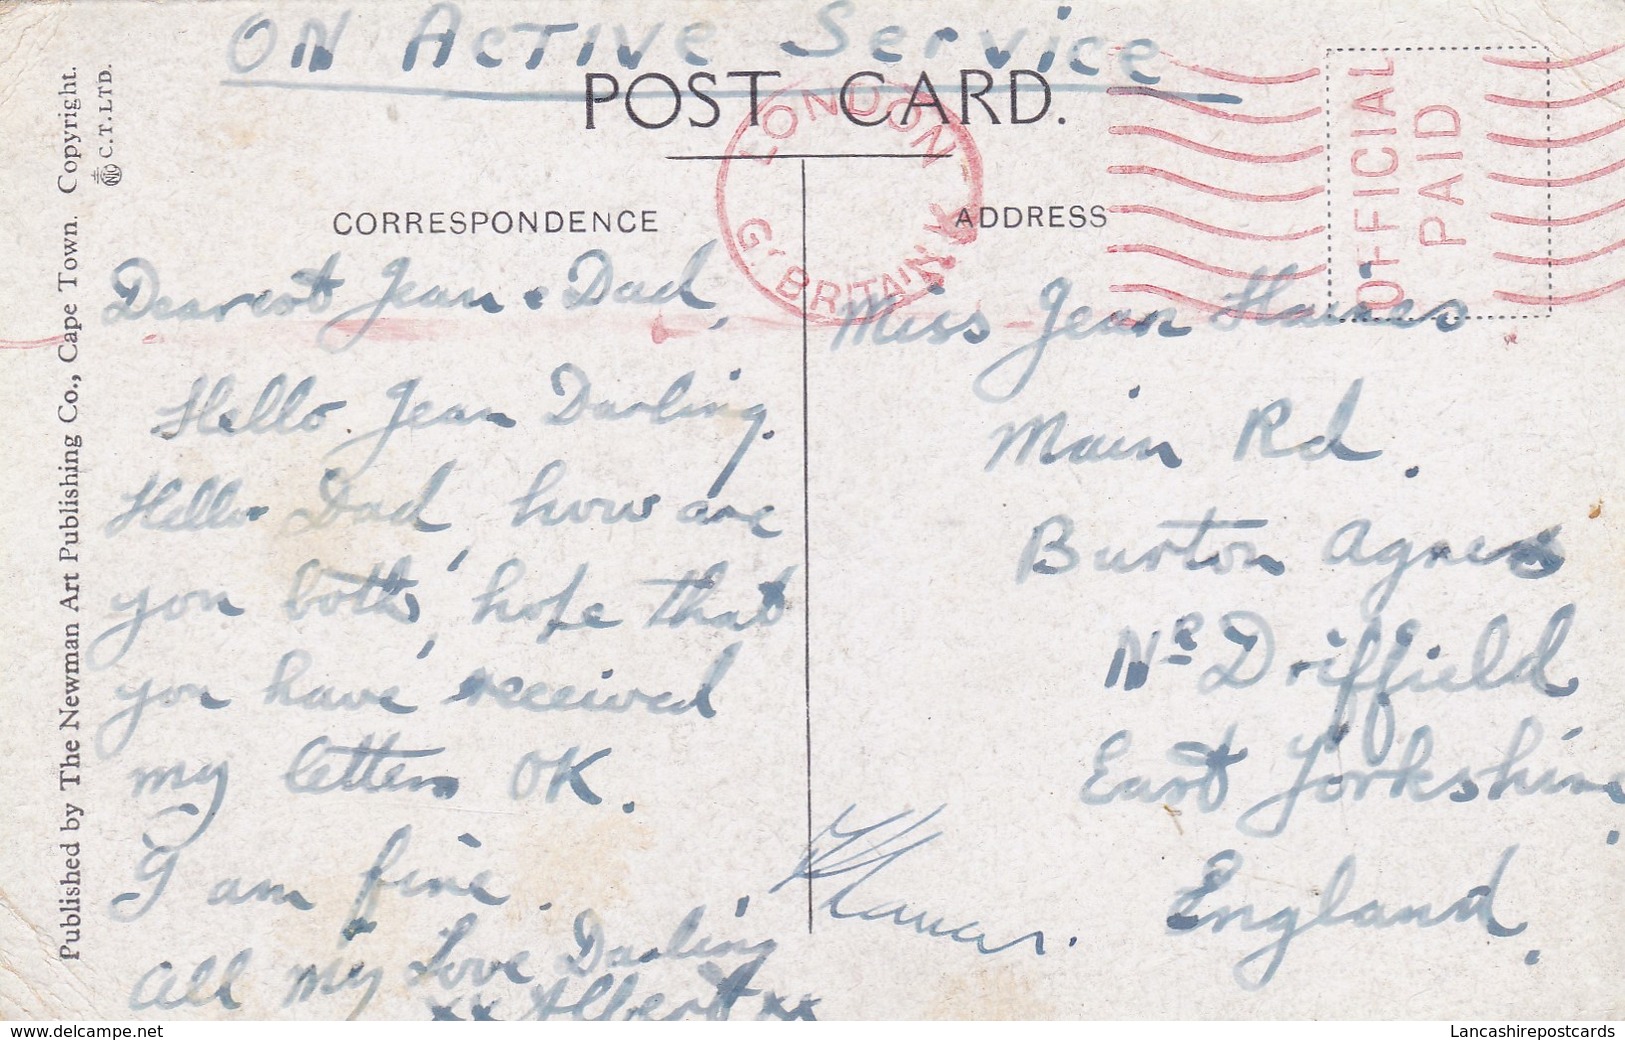 ON Active Service
POST CARD.
LONDON
Gt BRITAIN
OFFICIAL
PAID
Published by The Newman Art Publishing Co., Cape Town. Copyright.
C.T. LTD.
CORRESPONDENCE
Dearest Jean & Dad,
Hello Jean Darling.
Hello Dad, how are
you both, hope that
you have received
my letters OK.
I am fine.
All my Love Darling
xx Albert xx
ADDRESS
Miss Jean Haines
Main Rd.
Burton Agnes
Nr Driffield
East Yorkshire
England.
www.delcampe.net
Lancashirepostcards